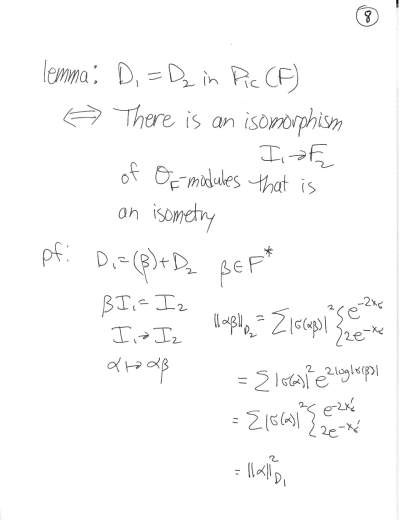 8
lemma: D₁ = D₂ in Pic(F)
⟺ There is an isomorphism
I₁→F₂
of O_F-modules that is
an isometry
pf: D₁=(β)+D₂ β∈F*
βI₁=I₂
I₁→I₂
α↦αβ
‖αβ‖_D₂ = Σ|σ(αβ)|² { e^{-2x_σ} 2e^{-x_σ}
= Σ|σ(α)|² e^{2log|σ(β)|}
= Σ|σ(α)|² { e^{-2x'_σ} 2e^{-x'_σ}
= ‖α‖²_D₁